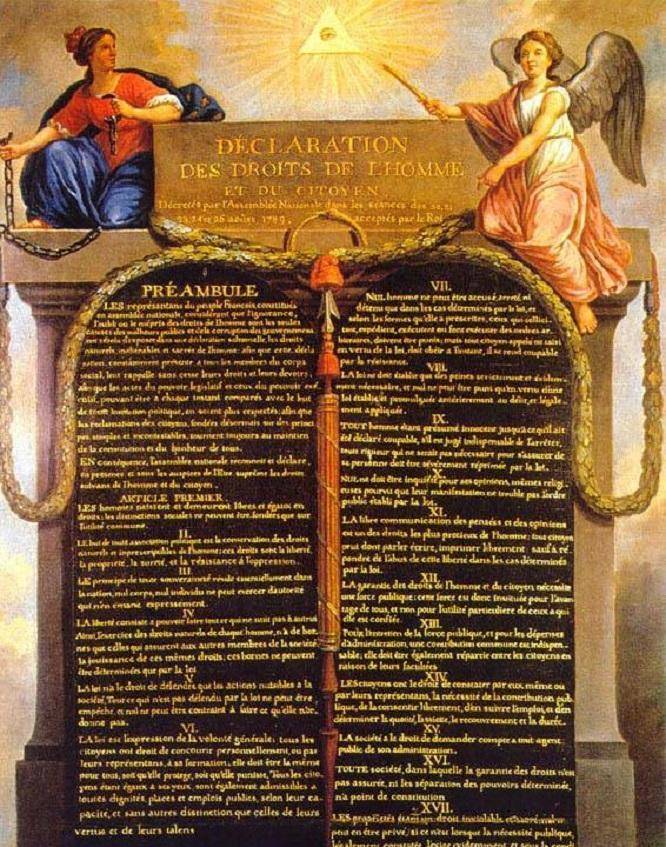 DÉCLARATION
DES DROITS DE L'HOMME
ET DU CITOYEN,
Décretés par l'Assemblée Nationale dans les séances des 20, 21
23, 24 et 26 aoûst 1789,
acceptés par le Roi
PRÉAMBULE
LES représentans du peuple Francois constitués
en assemblée nationale, considérant que l'ignorance,
l'oubli ou le mépris des droits de l'homme sont les seules
causes des malheurs publics et de la corruption des gouvernemens
ont résolu d'exposer dans une déclaration solemnelle, les droits
naturels, inaliénables et sacrés de l'homme: afin que cette décla
ration, constamment présente a tous les membres du corps
social, leur rappelle sans cesse leurs droits et leurs devoirs;
afin que les actes du pouvoir législatif et ceux du pouvoir exé
cutif, pouvant être a chaque instant comparés avec le but
de toute institution politique, en soient plus respectés; afin que
les reclamations des citoyens, fondées désormais sur des princi
pes simples et incontestables, tournent toujours au maintien
de la constitution et du bonheur de tous.
EN conséquence, l'assemblée nationale reconnoit et déclare
en presence et sous les auspices de l'Etre suprême les droits
suivans de l'homme et du citoyen.
ARTICLE PREMIER.
LES hommes naissent et demeurent libres et égaux en
droits; les distinctions sociales ne peuvent être fondées que sur
l'utilité commune.
II.
LE but de toute association politique est la conservation des droits
naturels et imprescriptibles de l'homme; ces droits sont la liberté,
la propriété, la sureté, et la résistance à l'oppression.
III.
LE principe de toute souveraineté réside essentiellement dans
la nation, nul corps, nul individu ne peut exercer d'autorité
qui n'en émane expressement.
IV.
LA liberté consiste a pouvoir faire tout ce qui ne nuit pas à autrui
Ainsi, l'exercice des droits naturels de chaque homme, n'a de bor
nes que celles qui assurent aux autres membres de la société
la jouissance de ces mêmes droits; ces bornes ne peuvent
être déterminées que par la loi
V.
LA loi n'a le droit de défendre que les actions nuisibles a la
société. Tout ce qui n'est pas défendu par la loi ne peut être
empêché, et nul ne peut être contraint à faire ce qu'elle n'or-
donne pas.
VI.
LA loi est l'expression de la volonté générale; tous les
citoyens ont droit de concourir personnellement, ou par
leurs représentans, à sa formation; elle doit être la même
pour tous, soit qu'elle protege, soit qu'elle punisse. Tous les cito
yens étant égaux à ses yeux, sont également admissibles a
toutes dignités, places et emplois publics, selon leur ca-
pacité, et sans autres distinction que celles de leurs
vertus et de leurs talens
VII.
NUL homme ne peut être accusé, arreté, ni
détenu que dans les cas déterminés par la loi, et
selon les formes qu'elle a prescrittes, ceux qui sollici-
tent, expédient, exécutent ou font exécuter des ordres ar-
bitraires, doivent être punis; mais tout citoyen appelé ou saisi
en vertu de la loi, doit obéir a l'instant, il se rend coupable
par la résistence.
VIII.
LA loi ne doit établir que des peines strictement et évidem-
ment nécessaire, et nul ne peut être puni qu'en vertu d'une
loi établie et promulguée antérieurement au délit, et légale
ment appliquée.
IX.
TOUT homme étant présumé innocent jusqu'a ce qu'il ait
été déclaré coupable, s'il est jugé indispensable de l'arrêter,
toute rigueur qui ne serait pas nécessaire pour s'assurer de
sa personne doit être sévèrement réprimée par la loi.
X.
NUL ne doit être inquiété pour ses opinions, mêmes religi
euses pourvu que leur manifestation ne trouble pas l'ordre
public établi par la loi.
XI.
LA libre communication des pensées et des opinions
est un des droits les plus précieux de l'homme; tout citoyen
peut donc parler écrire, imprimer librement: sauf à ré
pondre de l'abus de cette liberté dans les cas déterminés
par la loi.
XII.
LA garantie des droits de l'homme et du citoyen nécessite
une force publique; cette force est donc instituée pour l'avan
tage de tous, et non pour l'utilité particuliere de ceux a qui
elle est confiée.
XIII.
Pour l'entretien de la force publique, et pour les dépenses
d'administration, une contribution commune est indispen-
sable; elle doit être également répartie entre les citoyens en
raison de leurs facultées
XIV.
LES citoyens ont le droit de constater par eux même ou
par leurs représentans, la nécessité de la contribution pub
lique, de la consentir librement, d'en suivre l'emploi, et d'en
déterminer la quotité, l'assiette, le recouvrement et la durée.
XV.
LA société a le droit de demander compte a tout agent
public de son administration.
XVI.
TOUTE société, dans laquelle la garantie des droits n'est
pas assurée, ni les séparation des pouvoirs déterminée,
n'a point de constitution
XVII.
LES propriétés étant un droit inviolable et sacré, nul ne
peut en être privé, si ce n'est lorsque la nécessité publique,
légalement constatée, l'exige évidemment, et sous la condi